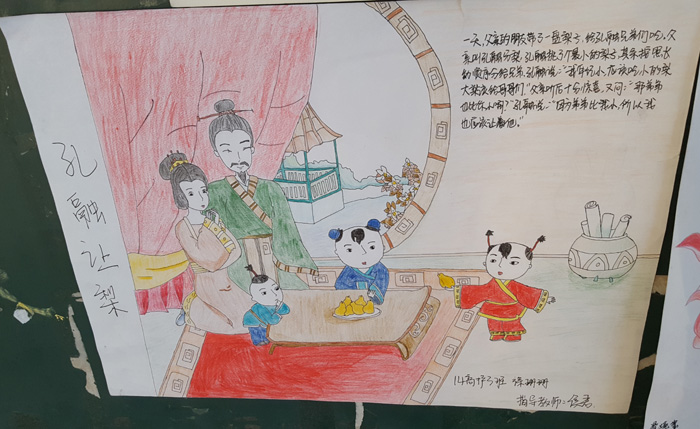 孔融让梨
一天,父亲的朋友带了一盘梨子,给孔融兄弟们吃,父
亲叫孔融分梨,孔融挑了个最小的梨子,其余按照长
幼顺序分给兄弟,孔融说:"我年纪小,应该吃小的梨
大梨该给哥哥们"父亲听后十分惊喜,又问:"那弟弟
也比你小啊?"孔融说:"因为弟弟比我小,所以我
也应该让着他。"
班
指导教师: